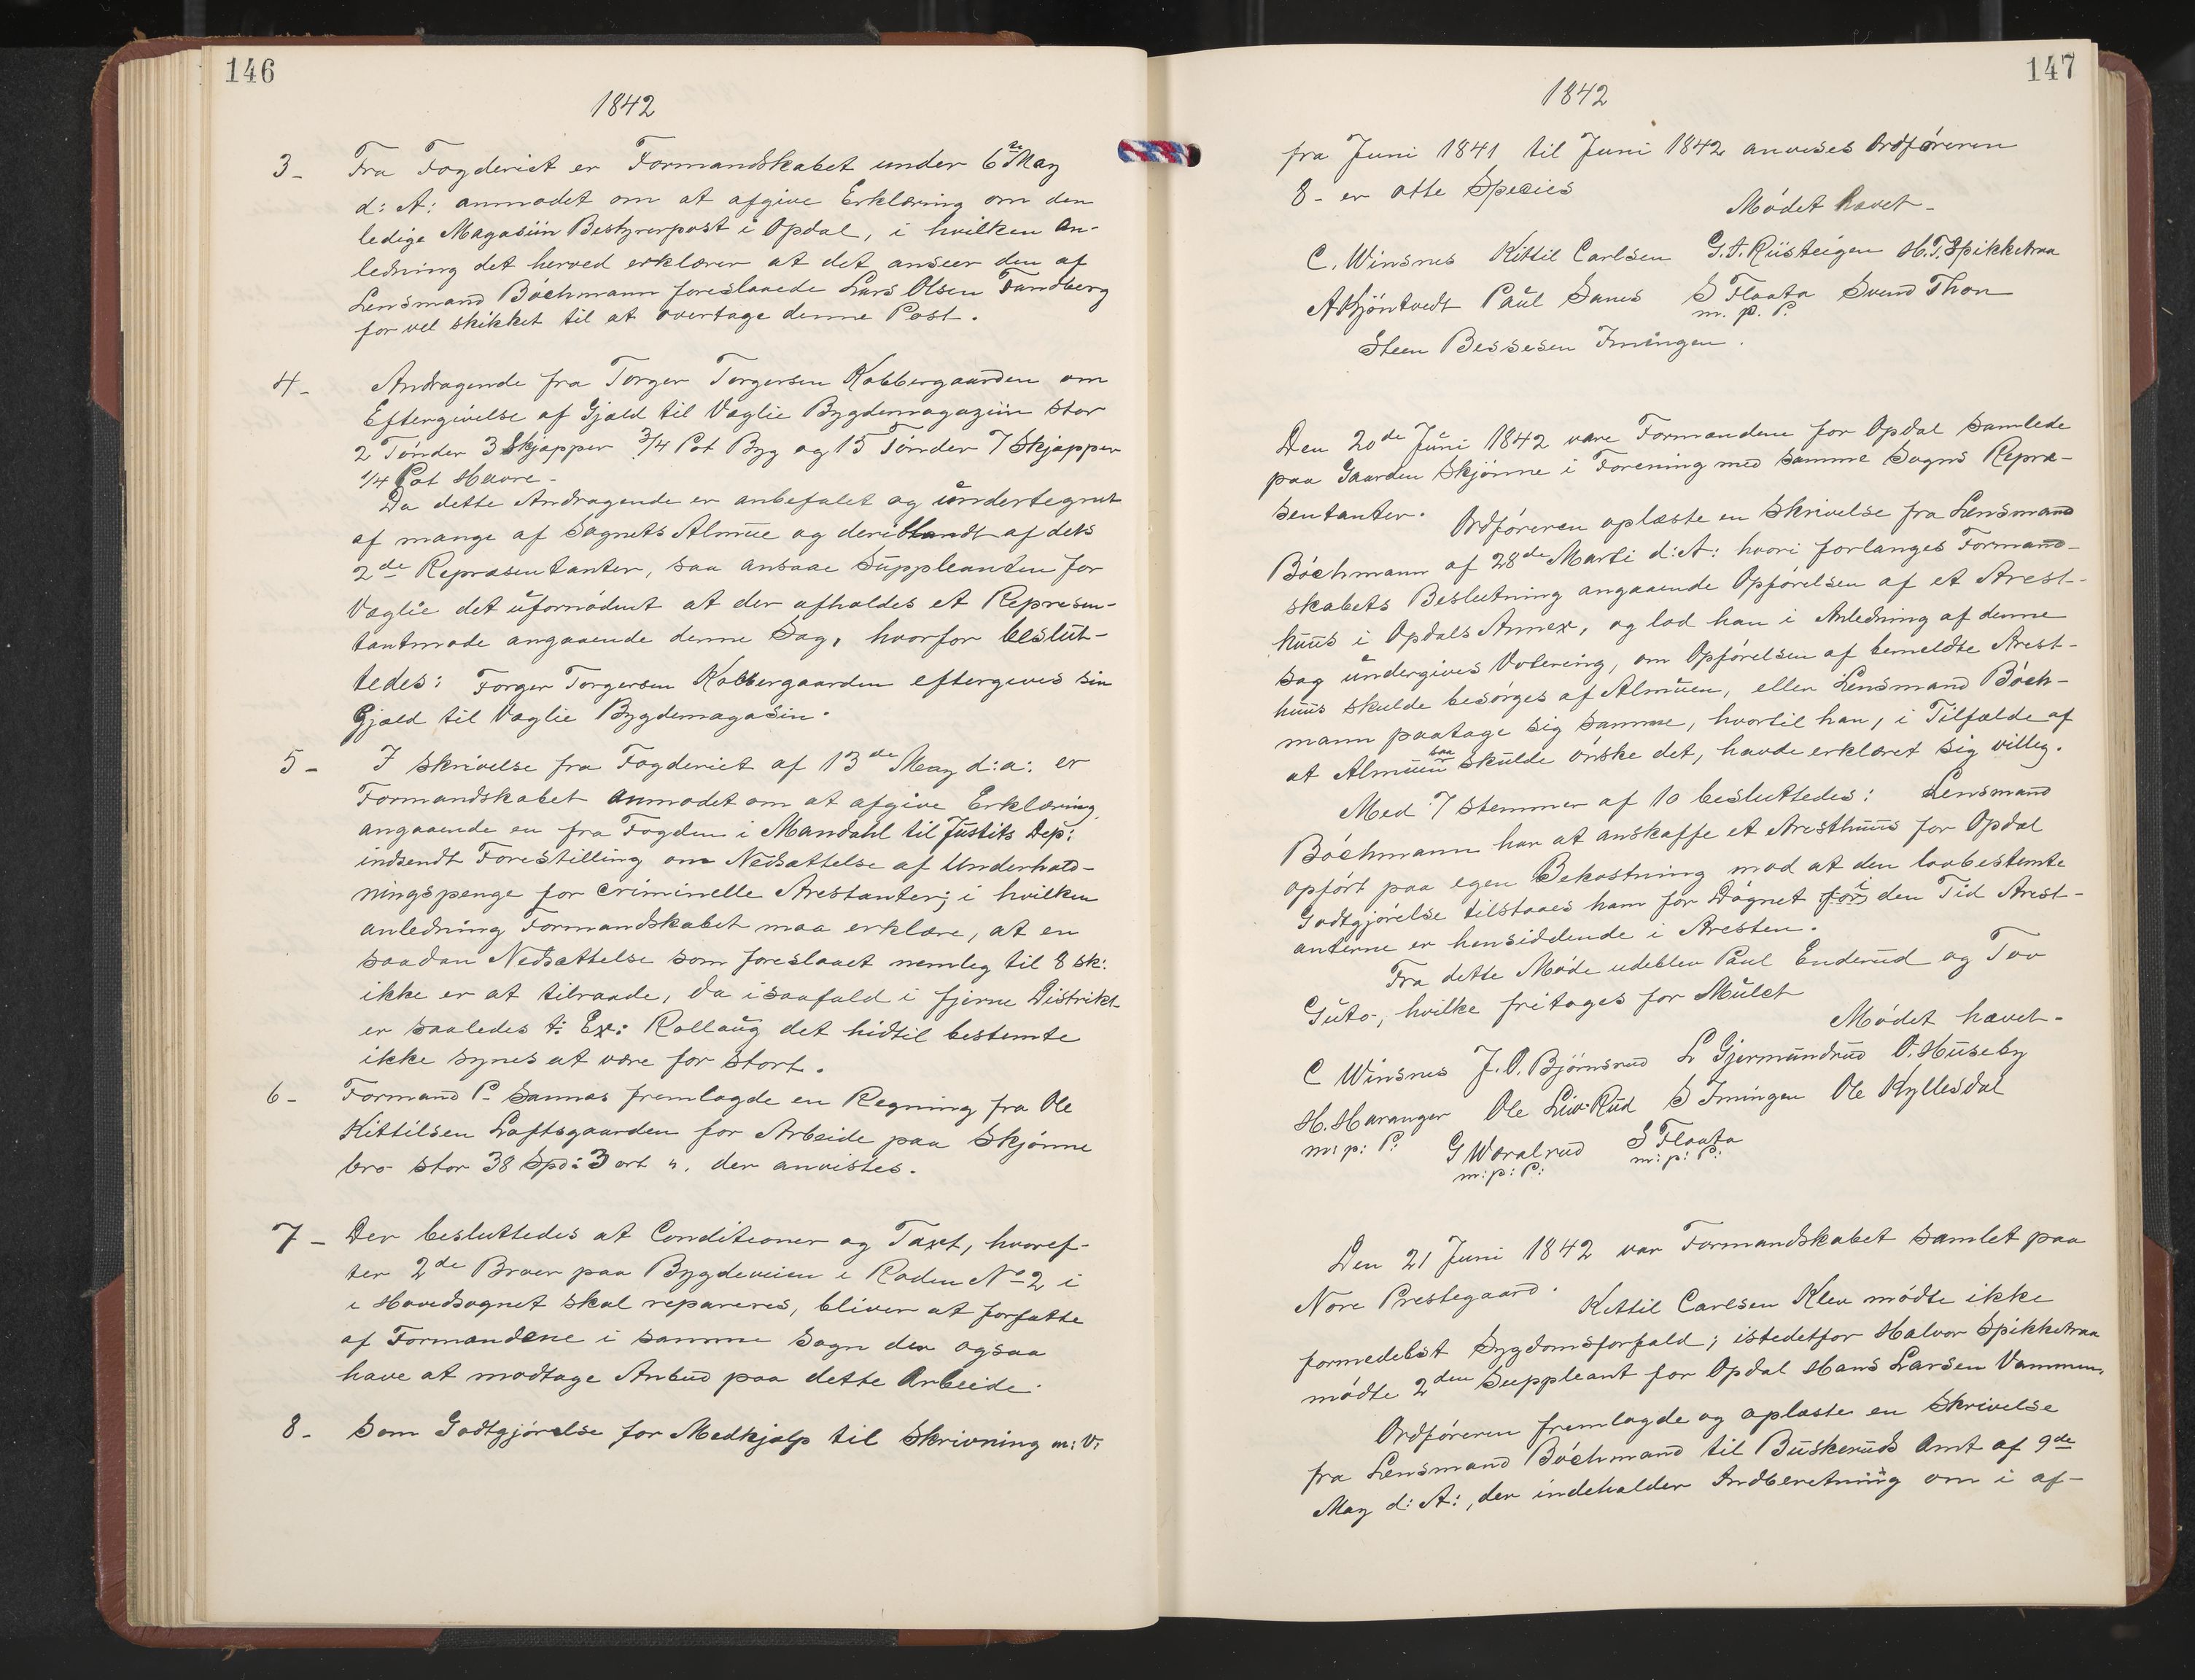 146
1842
3- Fra Fogderiet er Formandskabet under 6te May
d: A: anmodet om at afgive Erklæring om den
ledige Magasiin Bestyrerpost i Opdal, i hvilken An-
ledning det herved erklærer at det anseer den af
Lensmand Böchmann foreslaaede Lars Olsen Tandberg
for vel skikket til at overtage denne Post.
4- Andragende fra Torger Torgersen Kobbergaarden om
Eftergivelse af Gjæld til Væglie Bygdemagaziin stor
2 Tönder 3 Skjæpper 3/4 Pot Byg og 15 Tönder 7 Skjæpper
1/4 Pot Havre-
Da dette Andragende er anbefalet og undertegnet
af mange af Sognets Almue og deriblandt af dets
2de Repræsentanter, saa ansaae Suppleanten for
Væglie det ufornödent at der afholdes et Represen-
tantmøde angaaende denne Sag, hvorfor beslut-
tedes: Torger Torgersen Kobbergaarden eftergives sin
Gjæld til Væglie Bygdemagasin.
5- I skrivelse fra Fogderiet af 13de May d:a: er
Formandskabet anmodet om at afgive Erklæring
angaaende en fra Fogden i Mandahl til Justits Dep:
indsendt Forestilling om Nedsættelse af Underhold-
ningspenge for criminelle Arestanter; i hvilken
anledning Formandskabet maa erklære, at en
saadan Nedsættelse som foreslaaet nemleg til 8 sk:
ikke er at tilraade, da i saafald i fjerne Distrikt
er saaledes t: Ex: Rollaug det hidtil bestemte
ikke synes at være for stort.
6- Formand P. Sannæs fremlagde en Regning fra Ole
Kittilsen Loftsgaarden for Arbeide paa Skjönne
bro stor 38 Spd: 3 ort ". der anvistes.
7- Der besluttedes at Conditioner og Taxt, hvoref-
ter 2de Broer paa Bygdeveien i Roden No 2 i
i Hovedsognet skal repareres, bliver at forfatte
af Formændene i samme Sogn der ogsaa
have at modtage Anbud paa dette Arbeide.
8- Som Godtgjørelse for Medhjælp til Skrivning m: V:
147
1842
fra Juni 1841 til Juni 1842 anvises Ordføreren
8- er otte Species
Mödet hævet-
C. Winsnes Kittil Carlsen G. T. Riisteigen H. T. Spikketraa
A Kjöntvedt Paul Sanes S Flaata Svend Thon
m. p. P.
Steen Bessesen Imingen.
Den 20de Juni 1842 vare Formændene for Opdal samlede
paa Gaarden Skjönne i Forening med samme Sogns Repræ-
sentanter. Ordföreren oplæste en Skrivelse fra Lensmand
Böchmann af 28de Marti d:A: hvori forlanges Formand-
skabets Beslutning angaaende Opförelsen af et Arest-
huus i Opdals Annex, og lod han i Anledning af denne
Sag undergives Votering, om Opförelsen af bemeldte Arest-
huus skulde besörges af Almuen, eller Lensmand Böch-
mann paatage sig samme, hvortil han, i Tilfælde af
at Almuen saa skulde önske det, havde erklæret sig villeg.
Med 7 stemmer af 10 besluttedes: Lensmand
Böchmann har at anskaffe et Aresthuus for Opdal
opfört paa egen Bekostning mod at den lovbestemte
Godtgjörelse tilstaaes ham for Dögnet for i den Tid Arest-
anterne er hensiddende i Aresten.
Fra dette Möde udeblev Paul Enderud og Tov
Guto, hvilke fritages for Mulct
Mödet hævet-
C Winsnes J. O. Björnsrud L Gjermundrud O. Huseby
H. Haranger Ole Liv-Rud S Imingen Ole Kyllesdal
m: p: P. G Woralrud S Flaata
m: p: P: m: p: P:
Den 21 Juni 1842 var Formandskabet samlet paa
Nore Prestegaard. Kittil Carlsen Klev mödte ikke
formedelst Sygdomsforfald; istedetfor Halvor Spikketraa
mödte 2den Suppleant for Opdal Hans Larsen Vammen.
Ordföreren fremlagde og oplæste en Skrivelse
fra Lensmand Böchmand til Buskeruds Amt af 9de
May d: A:, der indeholder Indberetning om i af-